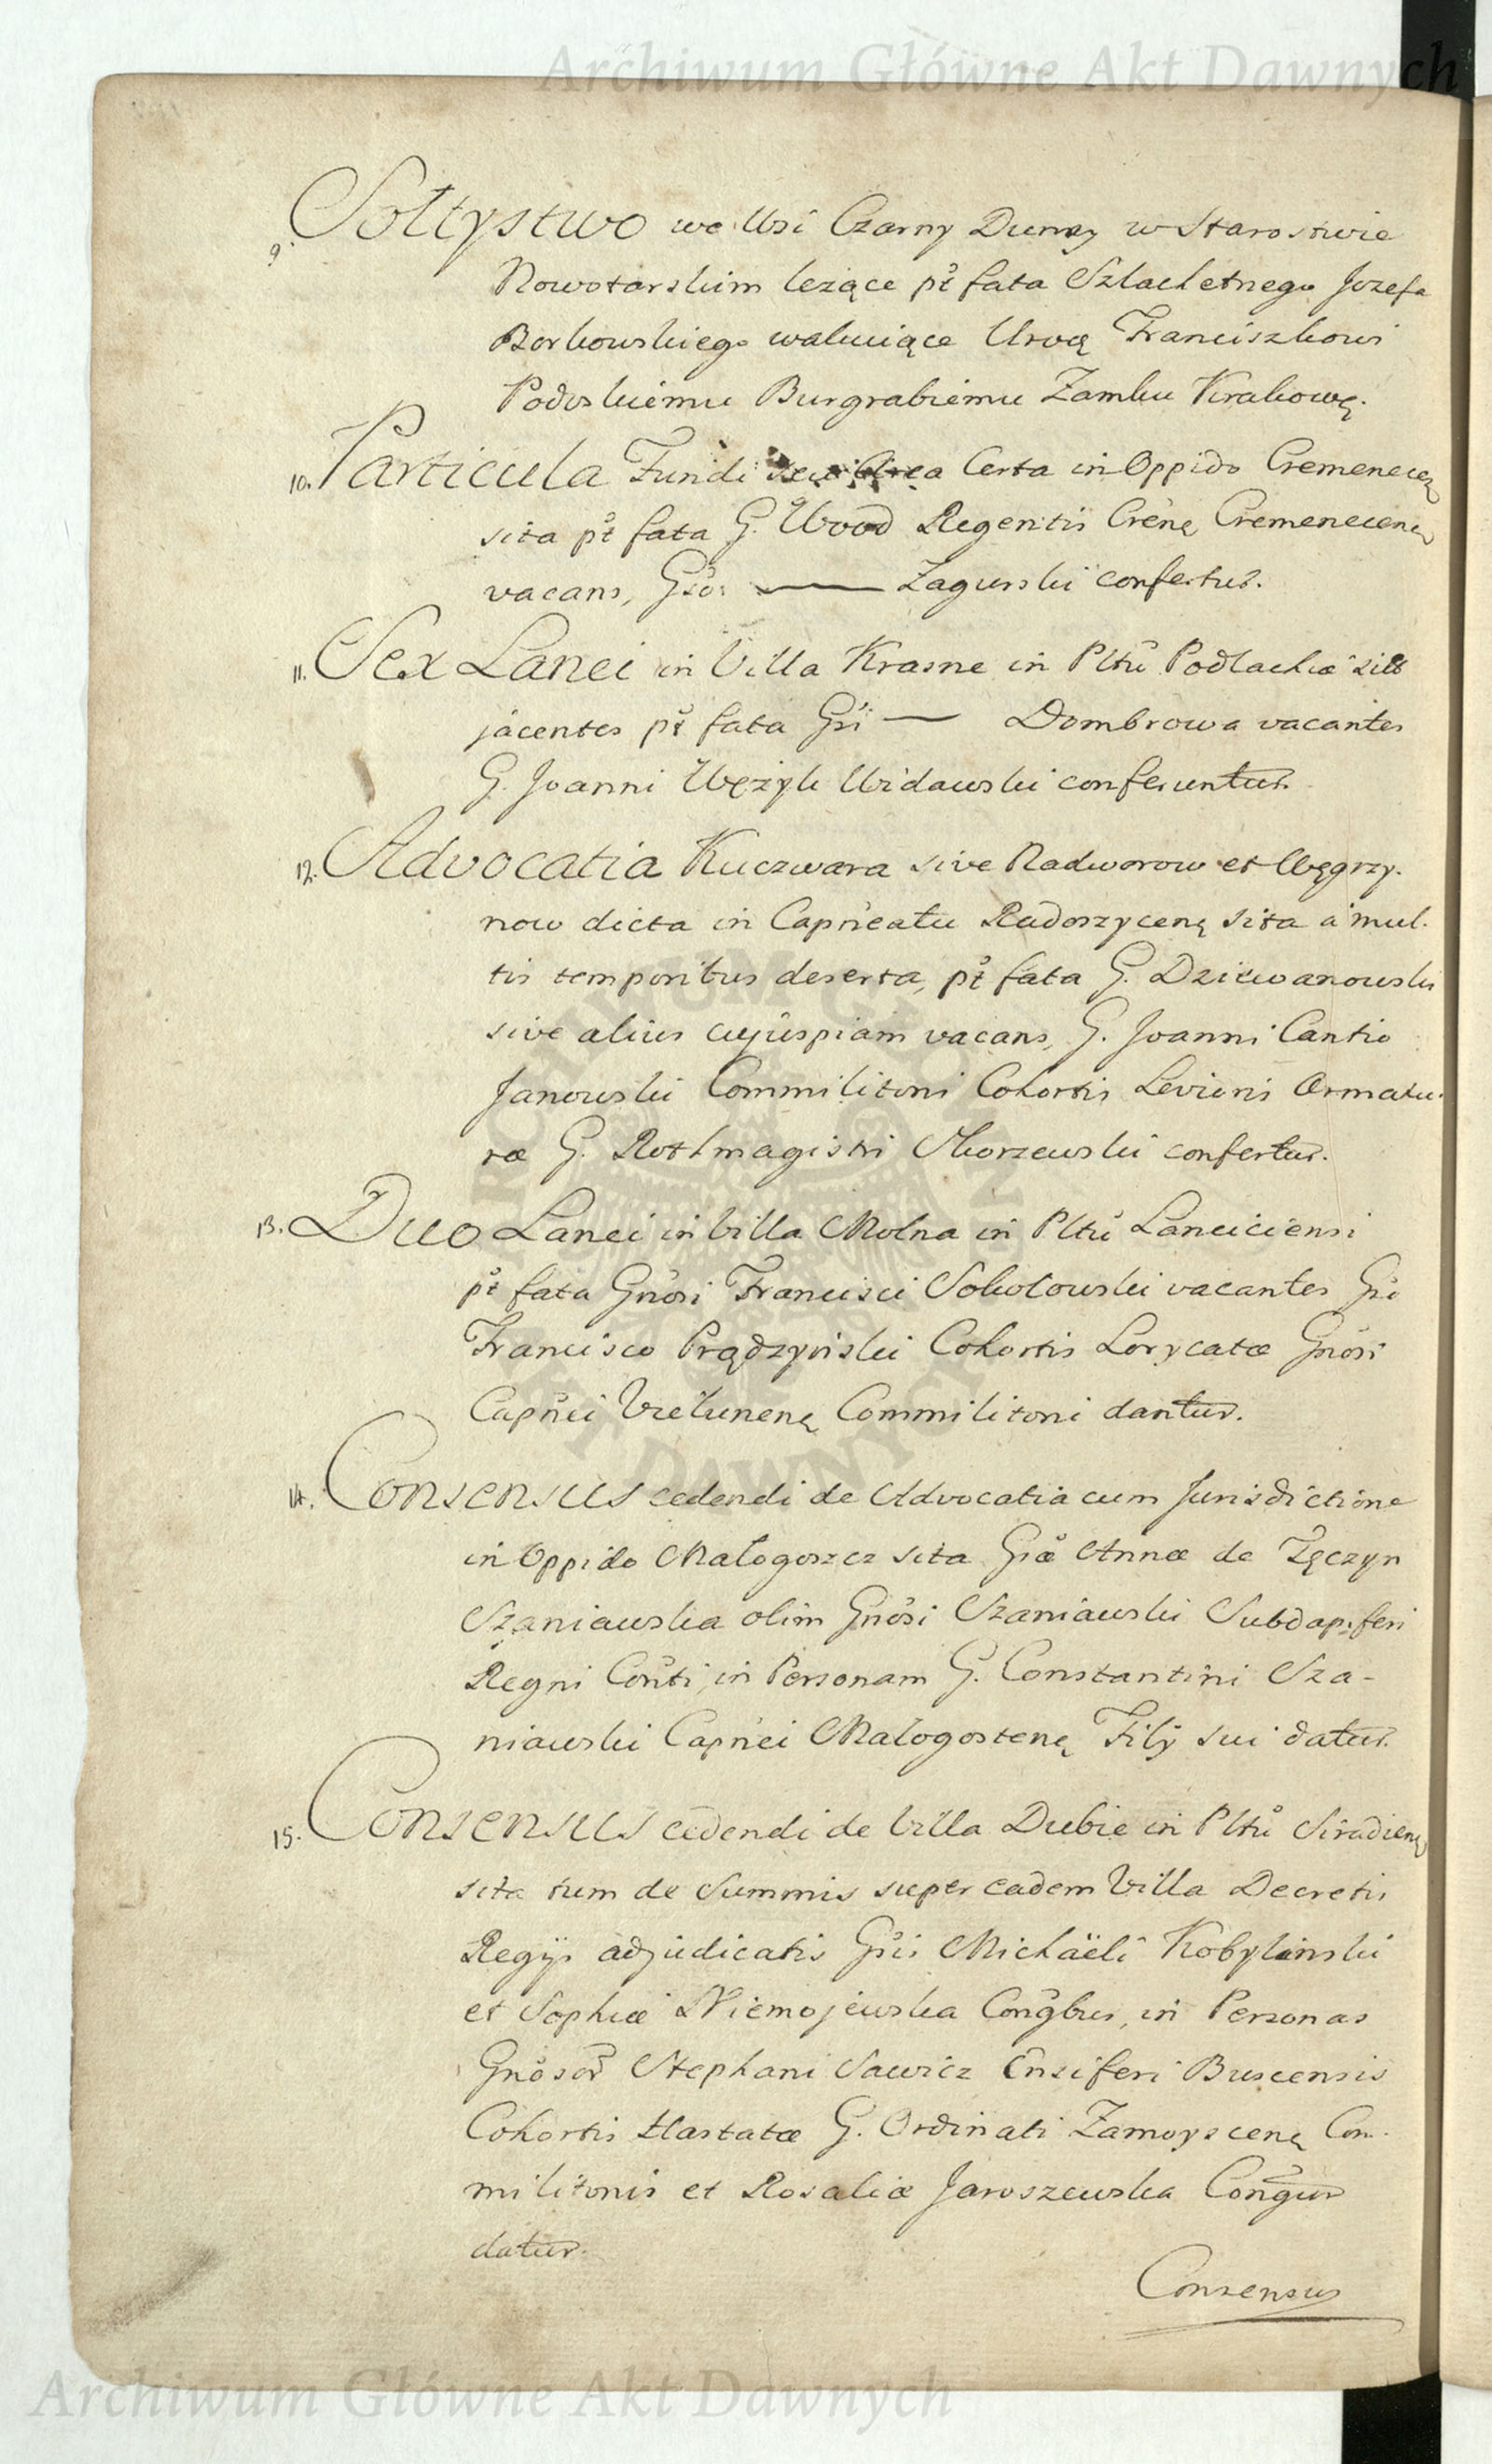 Archiwum Główne Akt Dawnych
9. Sołtystwo we Wsi Czarny Dunay w Starostwie
Nowotarskim leżące pt fata Szlachetnego Jozefa
Borkowskiego wakuiące Urod Franciszkowi
Podoskiemu Burgrabiemu Zamku Krakows.
10. Particula Fundi seu Area Certa in Oppido Cremenecen
sita pt fata G. Wood Regentis Crēn Cremenecen
vacans, Gso: — Zagurski confertur.
11. Sex Lanei in Villa Krasne in Pltū Podlachiæ sitt
jacentes pt fata Gsi — Dombrowa vacantes
G. Joanni Wężyk Widawski conferuntur.
12. Advocatia Kuczwara sive Nadworow et Węgrzy-
now dicta in Capneatu Radoszycen sita a mul-
tis temporibus deserta, pt fata G. Dziewanowski
sive alius cujuspiam vacans, G. Joanni Cantio
Janowski Commilitoni Cohortis Levioris Armatu-
ræ G. Rothmagistri Skorzewski confertur.
13. Duo Lanei in Villa Molna in Pltū Lanciciensi
pt fata Gnosi Francisci Sokołowski vacantes Gso
Francisco Prądzyński Cohortis Lorycatæ Gnosi
Capnei Vielunen Commilitoni dantur.
14. Consensus cedendi de Advocatia cum Jurisdictione
in Oppido Małogoszcz sita Gsæ Annæ de Tęczyn
Szaniawska olim Gnosi Szaniawski Subdapiferi
Regni Conti, in Personam G. Constantini Sza-
niawski Capnei Małogosten Filij sui datur.
15. Consensus cedendi de Villa Dubie in Pltū Siradien
sita tum de Summis super eadem Villa Decretis
Regijs adjudicatis Gsis Michaëli Kobylinski
et Sophiæ Niemojewska Congbus, in Personas
Gnosor Stephani Sawicz Ensiferi Buscensis
Cohortis Hastatæ G. Ordinati Zamoyscen Com-
militonis et Rosaliæ Jaroszewska Congum
datur.
Consensus
Archiwum Główne Akt Dawnych